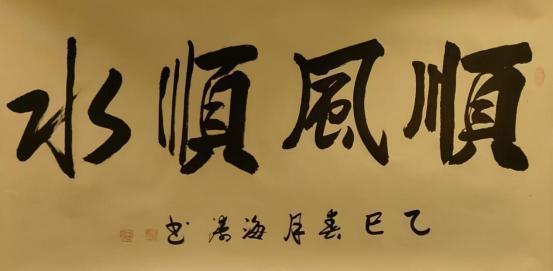 順風順水
乙巳春月海濤书